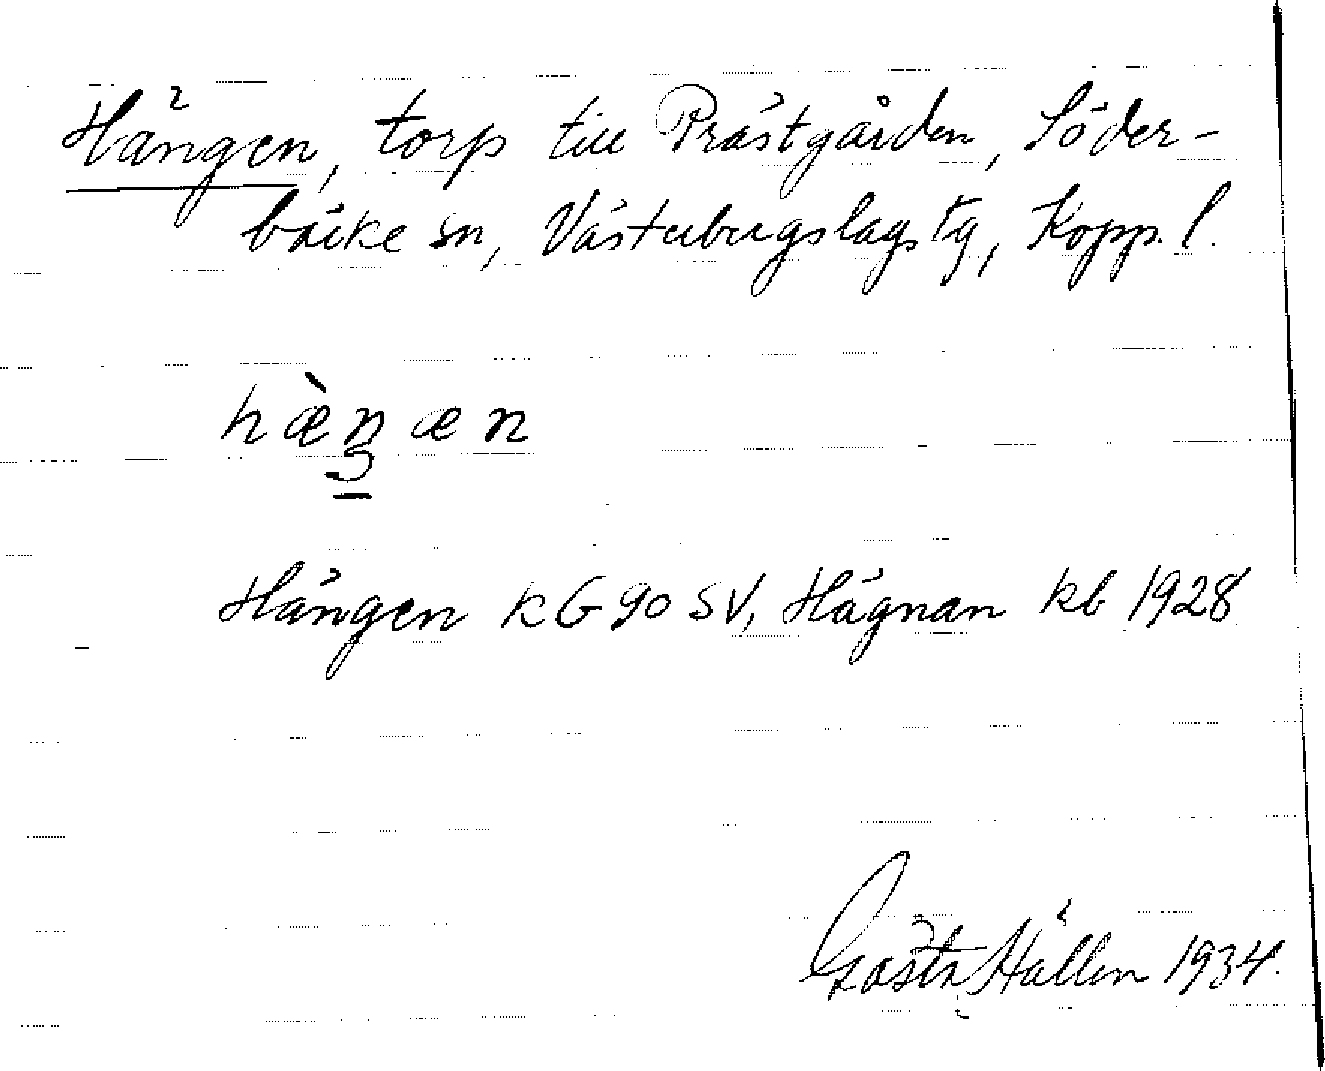 Hängen, torp till Prästgården, Söder-
bärke sn, Västerbergslags tg, Kopp. l.
hæ̀ŋæn
Hängen kG 90 SV, Hägnan kb 1928
Gösta Hällen 1934.